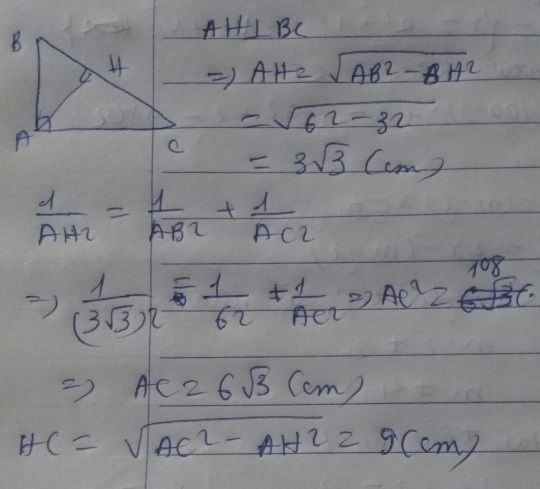 B
H
A
C
AH⊥BC
=> AH = √AB2 - BH2
= √62 - 32
= 3√3 (cm)
1/AH2 = 1/AB2 + 1/AC2
=> 1/(3√3)2 = 1/62 + 1/AC2 => AC2 = 108
=> AC = 6√3 (cm)
HC = √AC2 - AH2 = 9(cm)